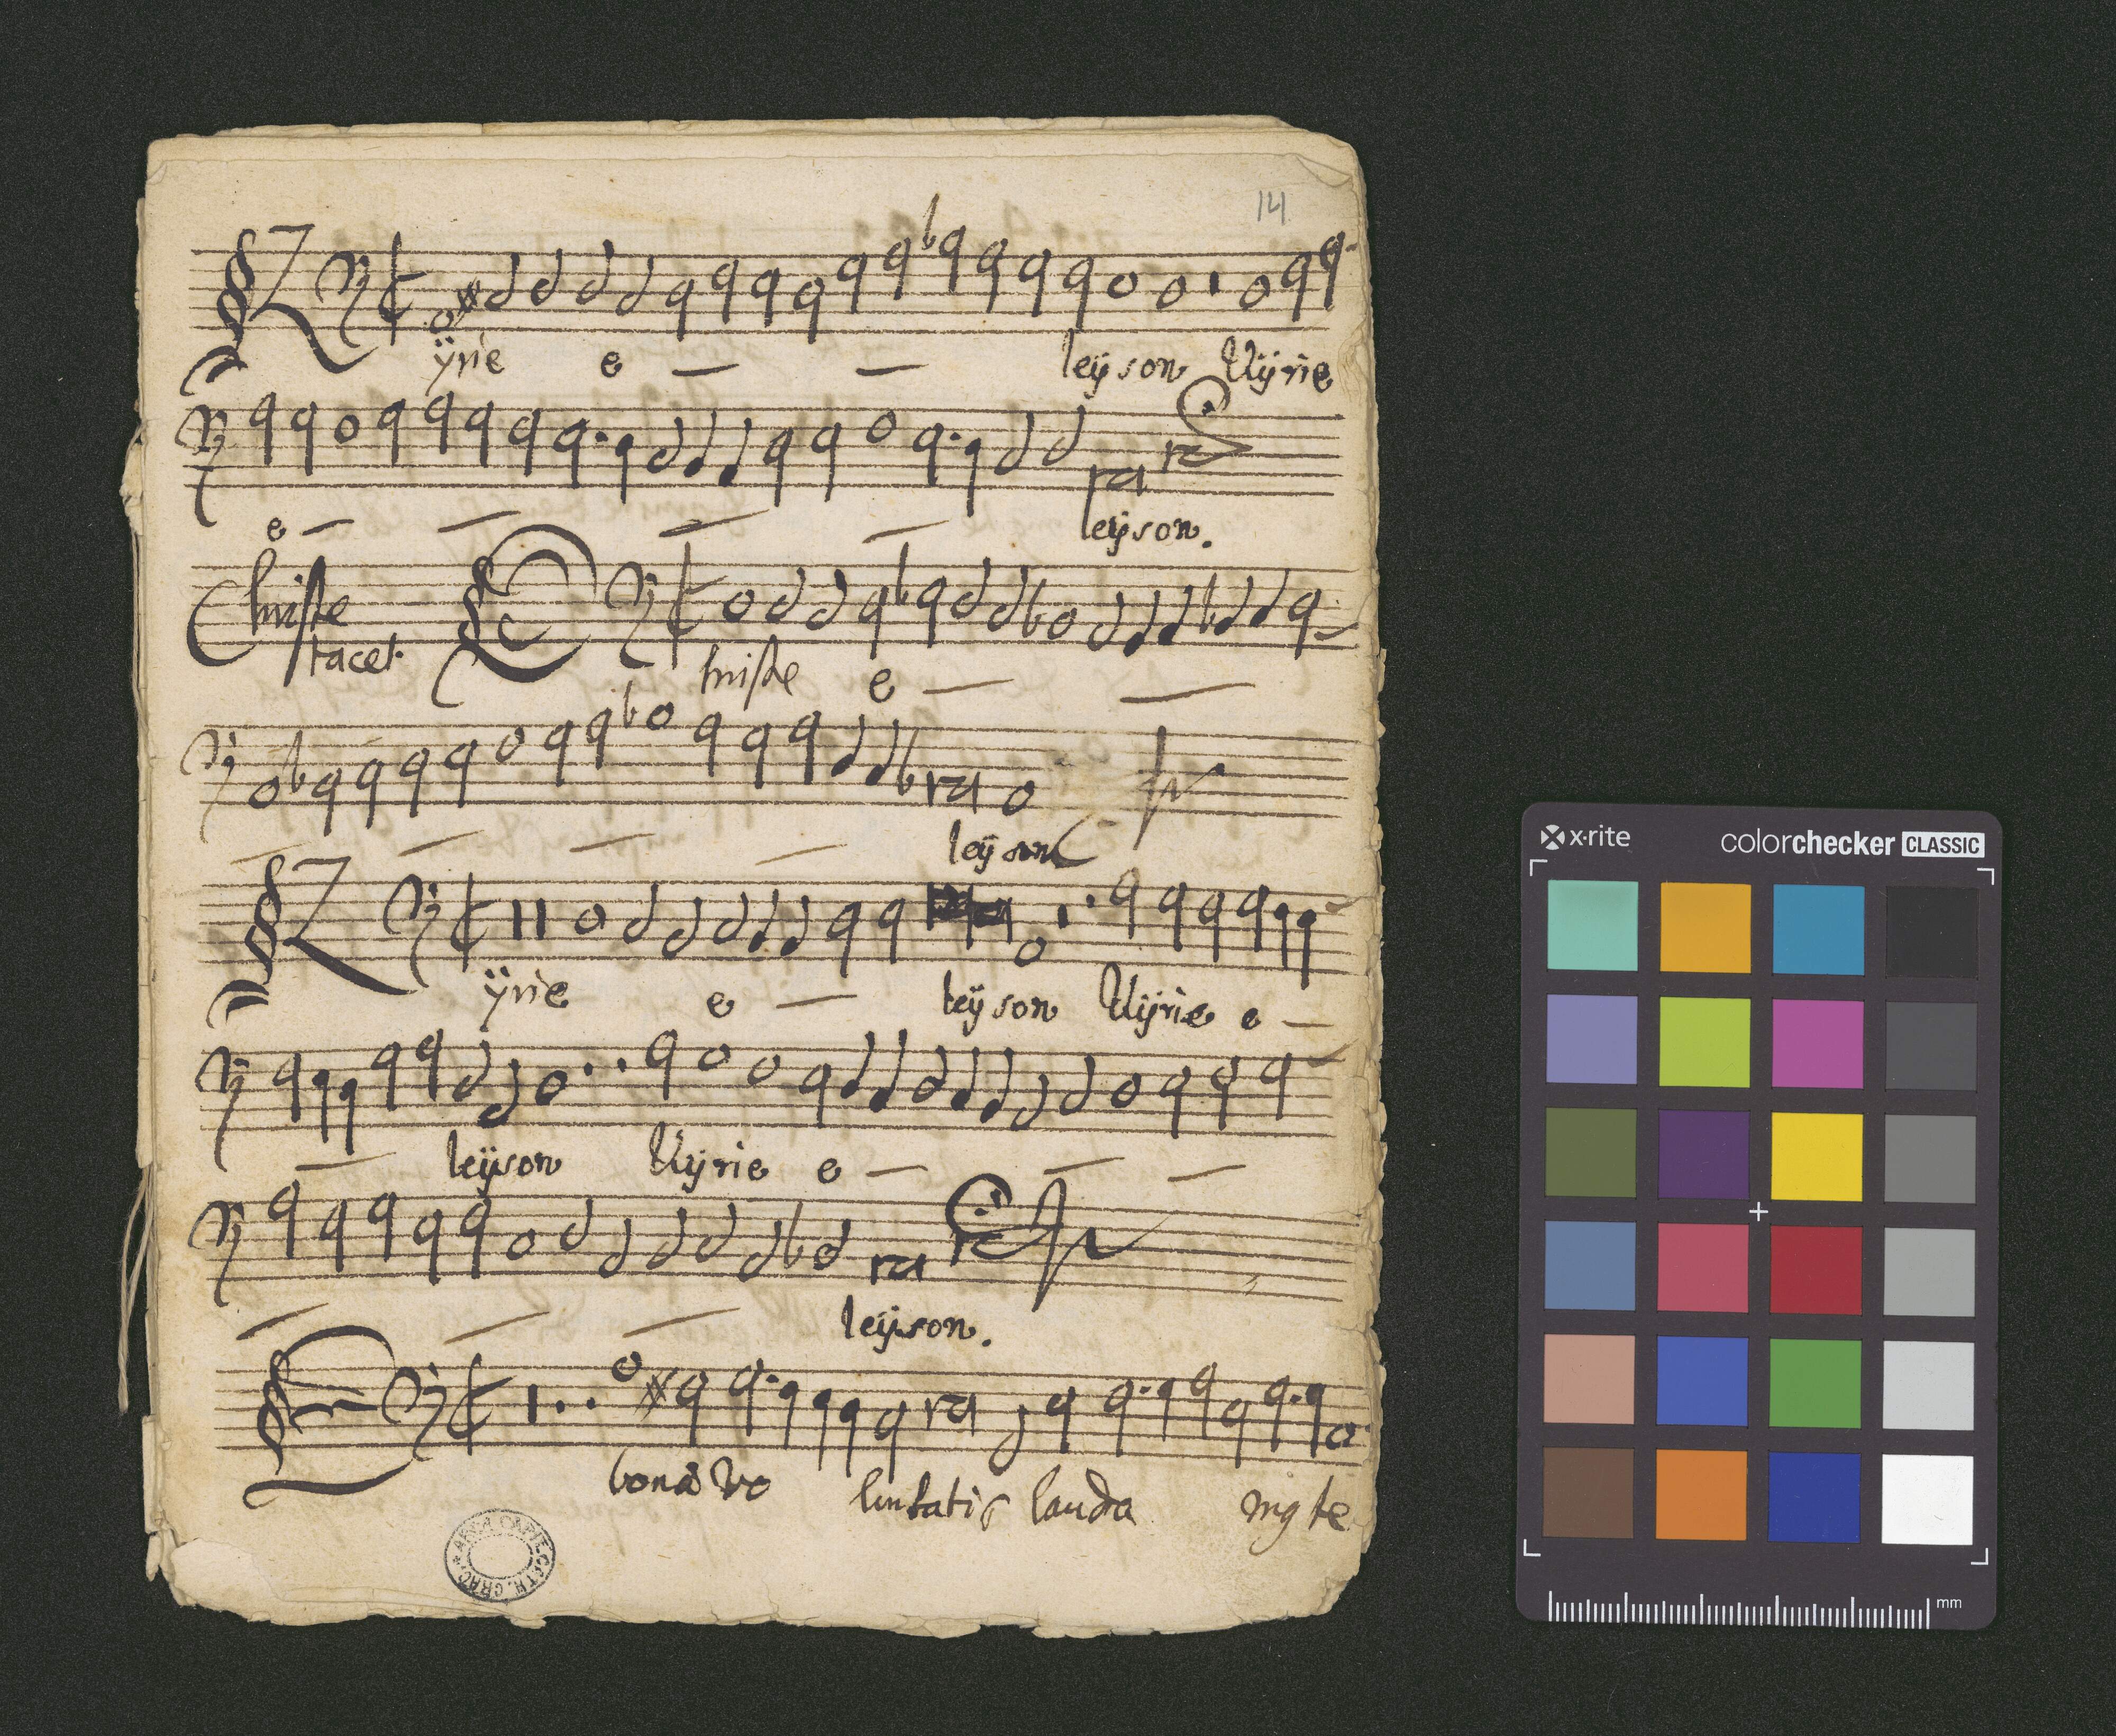 14
Kÿrie e leÿson Kÿrie
e leÿson.
Christe
tacet.
Christe e
leÿson
Kÿrie e leÿson Kÿrie e
leÿson Kÿrie e
leÿson.
bonæ vo luntatis lauda
x·rite
colorchecker CLASSIC
mm